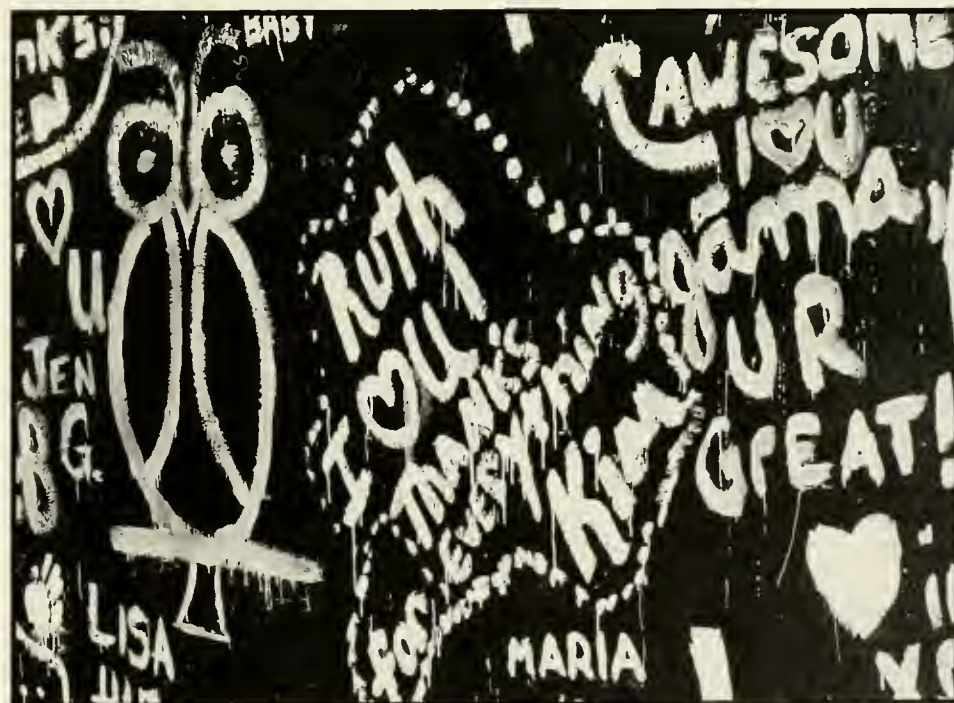 BABY
U
JEN
G.
LISA
Ruth
I ♡ U
THANKS 4
EVERYTHING
Kim
MARIA
AWESOME
I ♡ U
gama
U R
GREAT!